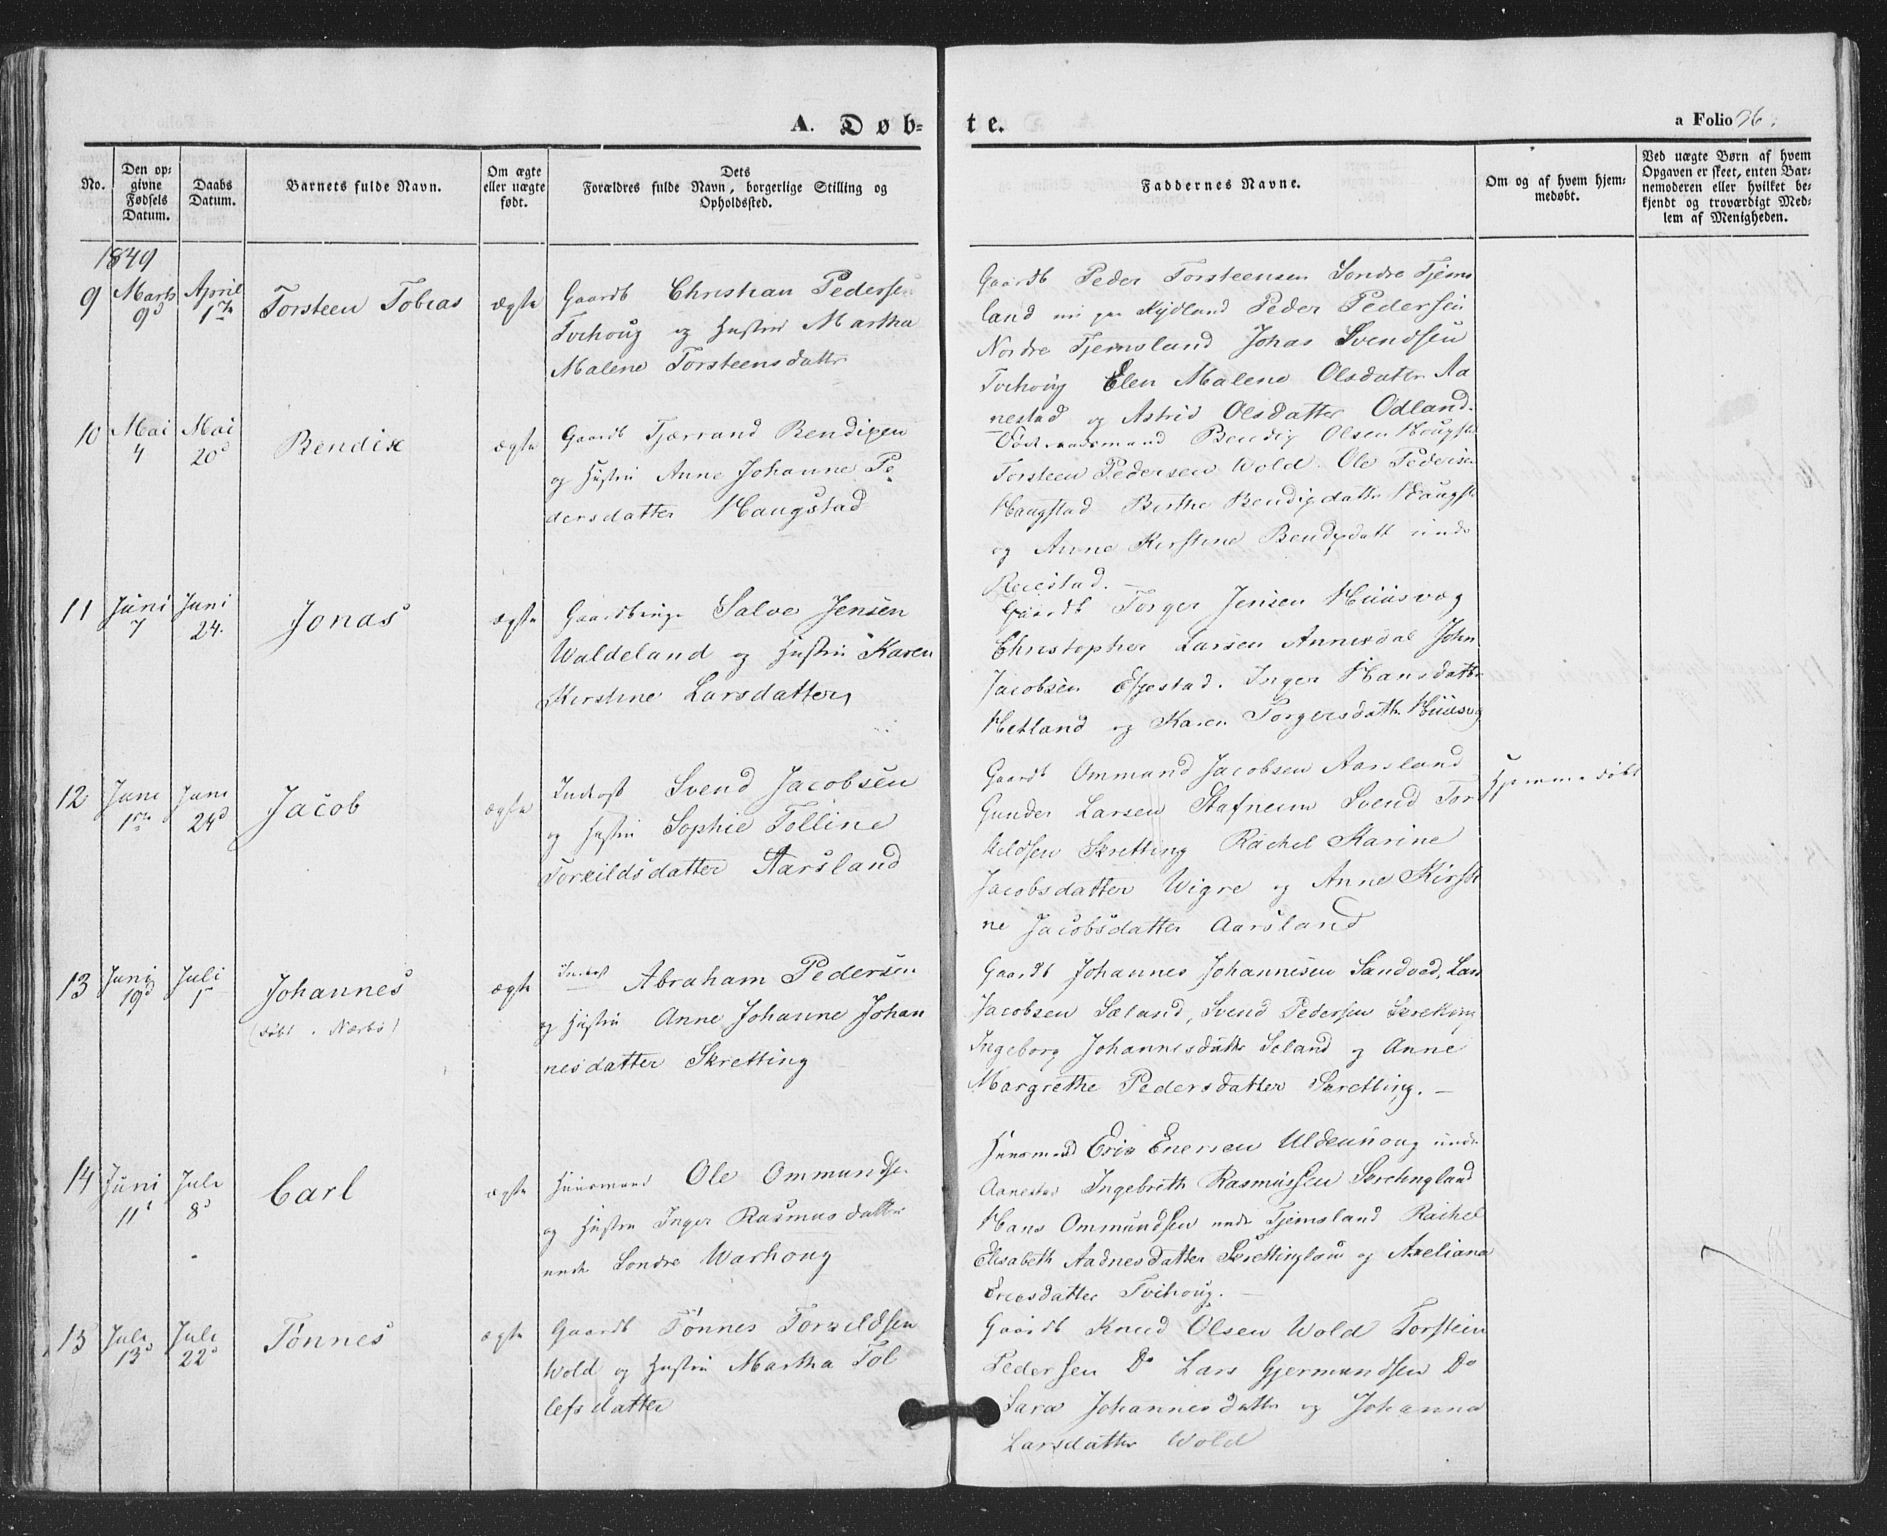 A. Døb-te.
a Folio 26.
No.
Den opgivne Fødsels Datum.
Daabs Datum.
Barnets fulde Navn.
Om ægte eller uægte født.
Dets Forældres fulde Navn, borgerlige Stilling og Opholdssted.
Faddernes Navne.
Om og af hvem hjemmedøbt.
Ved uægte Børn af hvem Opgaven er skeet, enten Barnemoderen eller hvilket bekjendt og troværdigt Medlem af Menigheden.
1849
9 Marts 9d April 1ste Torsteen Tobias ægte
Gaardb Christian Pedersen
Tvihoug og Hustru Martha
Malene Torsteensdatter
Gaardb Peder Torsteensen Søndre Tjems
land nu paa Kydland Peder Pedersen
Nordre Tjemsland Johas Svendsen
Tvihoug Elen Malene Olsdatter Aa
nestad og Astrid Olsdatter Odland.
10 Mai 4 Mai 20d Bendix ægte
Gaardb Tjærrand Bendixen
og Hustru Anne Johanne Pe
dersdatter Haugstad
Bendix Olsen Haugstd
Torsteen Pedersen Wold. Ole Pedersen
Haugstad Berthe Bendixdattr Haugst
og Anne Kirstine Bendixdatt unde
Reiestad.
11 Juni 7 Juni 24. Jonas ægte
Gaardbruge Salve Jensen
Waldeland og Hustru Karen
Kirstine Larsdatter
Gaardb Torger Jensen Huusvæg
Christopher Larsen Annisdal John
Jacobsen Egestad. Inger Hansdattr
Hetland og Karen Torgersdattr Huusvg
12 Juni 1ste Juni 24d Jacob ægte
Inderst Svend Jacobsen
og Hustru Sophie Tolline
Torkildsdatter Aarsland
Gaardb Ommund Jacobsen Aarsland
Gunder Larsen Stafneim Svend Tor
kildsen Skretting Rachel Karine
Jacobsdatter Wigre og Anne Kirsti
ne Jacobsdatter Aarsland
Hjemmedøbt
13 Juni 19d Juli 1ste Johannes
(døbt i Nærbø)
ægte
Inderst Abraham Pedersen
og Hustru Anne Johanne Johan
nesdatter Skretting
Gaardb Johannes Johannesen Sandved, Lars
Jacobsen Sæland, Svend Pedersen Skretting
Ingeborg Johannesdattr Seland og Anne
Margrethe Pedersdatter Skretting. —
14 Juni 11t Juli 8d Carl ægte
Huusmand Ole Ommundse.
og Hustru Inger Rasmusdatter
unde Søndre Warhoug
Huusmand Eric Enersen Uldenhoug unde
Aanestad Ingebreth Rasmussen Skretingland
Hans Ommundsen unde Tjemsland Rachel
Elisabeth Aadnesdatter Skrettingland og Axeliana
Ericsdatter Tvihoug. —
15 Juli 13d Juli 22d Tønnes ægte
Gaardb Tønnes Torkildsen
Wold og Hustru Martha Tol
lefsdatter
Gaardb Knud Olsen Wold Torstein
Pedersen Do Lars Gjermundsen Do
Sara Johannesdattr og Johanna
Larsdatter Wold